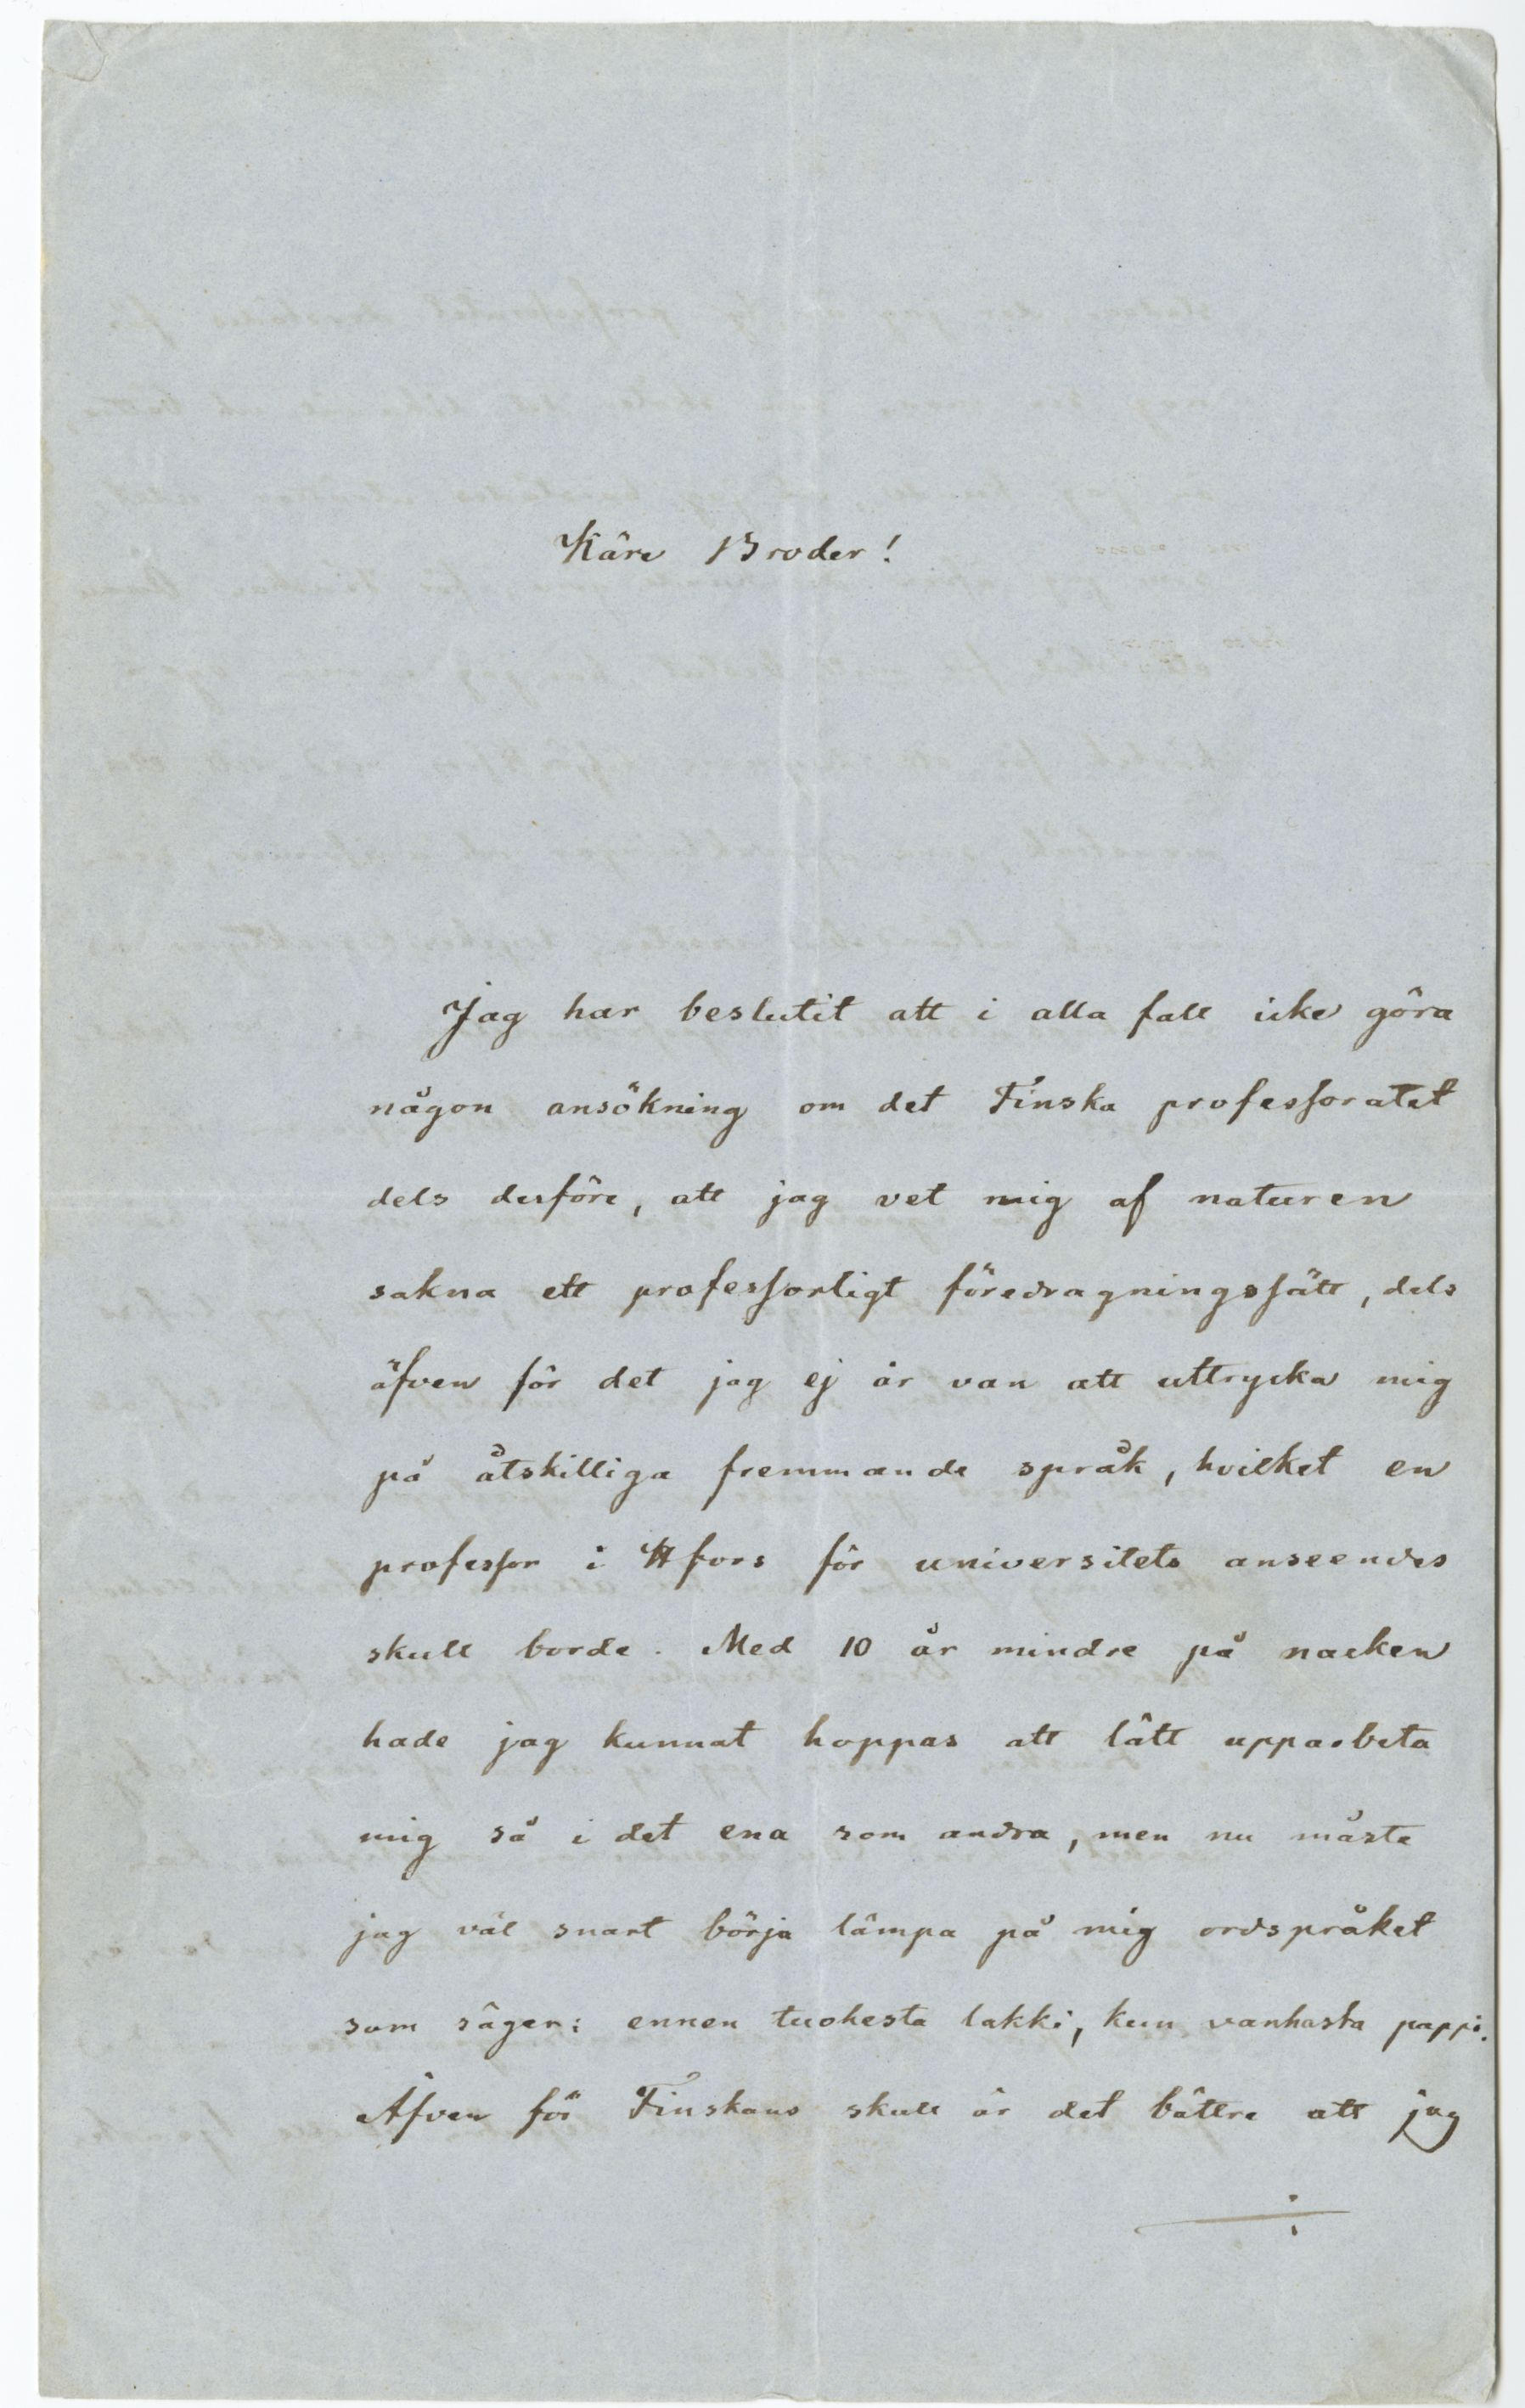 Käre Broder!
Jag har beslutit att i alla fall icke göra
någon ansökning om det Finska professoratet
dels derföre, att jag vet mig af naturen
sakna ett professorligt föredragningssätt, dels
äfven för det jag ej är van att uttrycka mig
på åtskilliga fremmande språk, hvilket en
professor i Hfors för universitets anseendes
skull borde. Med 10 år mindre på nacken
hade jag kunnat hoppas att lätt upparbeta
mig så i det ena som andra, men nu måste
jag väl snart börja lämpa på mig ordspråket
som säger: ennen tuohesta lakki, kun vanhasta pappi.
Äfven för Finskans skull är det bättre att jag